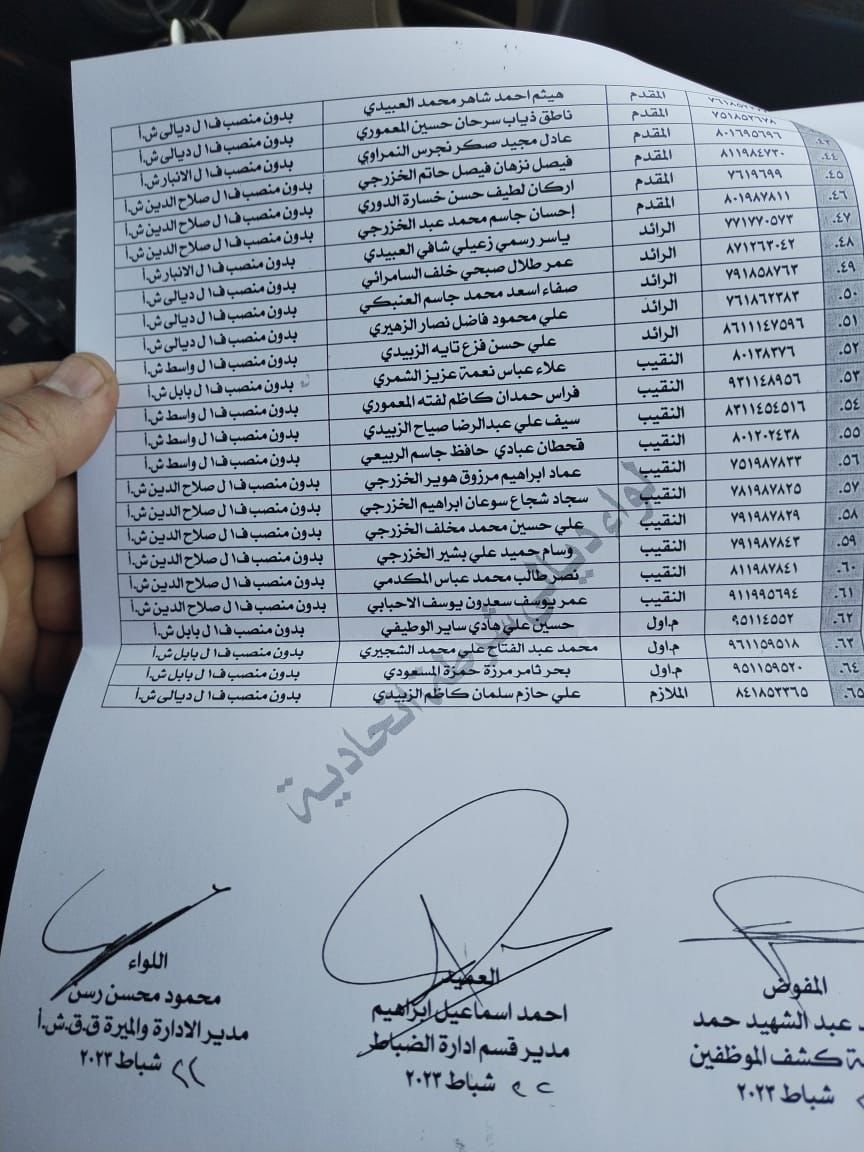 المقدم هيثم احمد شاهر محمد العبيدي بدون منصب ف١ ل ديالى ش.أ
٧٥١٨٥٢٦٧٨ المقدم ناطق ذياب سرحان حسين المعموري بدون منصب ف١ ل ديالى ش.أ
٤٣. ٨٠١٦٩٥٦٩٦ المقدم عادل مجيد صكر نجرس النمراوي بدون منصب ف١ ل الانبار ش.أ
٤٤. ٨١١٩٨٤٧٣٠ المقدم فيصل نزهان فيصل حاتم الخزرجي بدون منصب ف١ ل صلاح الدين ش.أ
٤٥. ٧٦١٩٦٩٩ المقدم اركان لطيف حسن خسارة الدوري بدون منصب ف١ ل صلاح الدين ش.أ
٤٦. ٨٠١٩٨٧٨١١ المقدم إحسان جاسم محمد عبد الخزرجي بدون منصب ف١ ل صلاح الدين ش.أ
٤٧. ٧٧١٧٧٠٥٧٣ الرائد ياسر رسمي زعيلي شافي العبيدي بدون منصب ف١ ل الانبار ش.أ
٤٨. ٨٧١٢٦٣٠٤٢ الرائد عمر طلال صبحي خلف السامرائي بدون منصب ف١ ل ديالى ش.أ
٤٩. ٧٩١٨٥٨٧٦٣ الرائد صفاء اسعد محمد جاسم العنبكي بدون منصب ف١ ل ديالى ش.أ
٥٠. ٧٦١٨٦٢٣٨٣ الرائد علي محمود فاضل نصار الزهيري بدون منصب ف١ ل ديالى ش.أ
٥١. ٨٦١١١٤٧٥٩٦ الرائد علي حسن فزع تايه الزبيدي بدون منصب ف١ ل واسط ش.أ
٥٢. ٨٠١٣٨٣٧٦ النقيب علاء عباس نعمة عزيز الشمري بدون منصب ف١ ل بابل ش.أ
٥٣. ٩٣١١٤٨٩٥٦ النقيب فراس حمدان كاظم لفته المعموري بدون منصب ف١ ل واسط ش.أ
٥٤. ٨٣١١٤٥٤٥١٦ النقيب سيف علي عبدالرضا صياح الزبيدي بدون منصب ف١ ل واسط ش.أ
٥٥. ٨٠١٢٠٢٤٣٨ النقيب قحطان عبادي حافظ جاسم الربيعي بدون منصب ف١ ل واسط ش.أ
٥٦. ٧٥١٩٨٧٨٣٣ النقيب عماد ابراهيم مرزوق هوير الخزرجي بدون منصب ف١ ل صلاح الدين ش.أ
٥٧. ٧٨١٩٨٧٨٢٥ النقيب سجاد شجاع سوعان ابراهيم الخزرجي بدون منصب ف١ ل صلاح الدين ش.أ
٥٨. ٧٩١٩٨٧٨٢٩ النقيب علي حسين محمد مخلف الخزرجي بدون منصب ف١ ل صلاح الدين ش.أ
٥٩. ٧٩١٩٨٧٨٤٣ النقيب وسام حميد علي بشير الخزرجي بدون منصب ف١ ل صلاح الدين ش.أ
٦٠. ٨١١٩٨٧٨٤١ النقيب نصر طالب محمد عباس المكدمي بدون منصب ف١ ل صلاح الدين ش.أ
٦١. ٩١١٩٩٥٦٩٤ النقيب عمر يوسف سعدون يوسف الاحبابي بدون منصب ف١ ل صلاح الدين ش.أ
٦٢. ٩٥١١٤٥٥٢ م.اول حسين علي هادي ساير الوطيفي بدون منصب ف١ ل بابل ش.أ
٦٣. ٩٦١١٥٩٥١٨ م.اول محمد عبد الفتاح علي محمد الشجيري بدون منصب ف١ ل بابل ش.أ
٦٤. ٩٥١١٥٩٥٢٠ م.اول بحر ثامر مرزة حمزة المسعودي بدون منصب ف١ ل بابل ش.أ
٦٥. ٨٤١٨٥٣٣٦٥ الملازم علي حازم سلمان كاظم الزبيدي بدون منصب ف١ ل ديالى ش.أ
لواء ديالى شرطة اتحادية
المفوض
عبد الشهيد حمد
كشف الموظفين
شباط ٢٠٢٣
العميد
احمد اسماعيل ابراهيم
مدير قسم ادارة الضباط
٢٢ شباط ٢٠٢٣
اللواء
محمود محسن رسن
مدير الادارة والميرة ق.ق.ش.أ
٢٢ شباط ٢٠٢٣